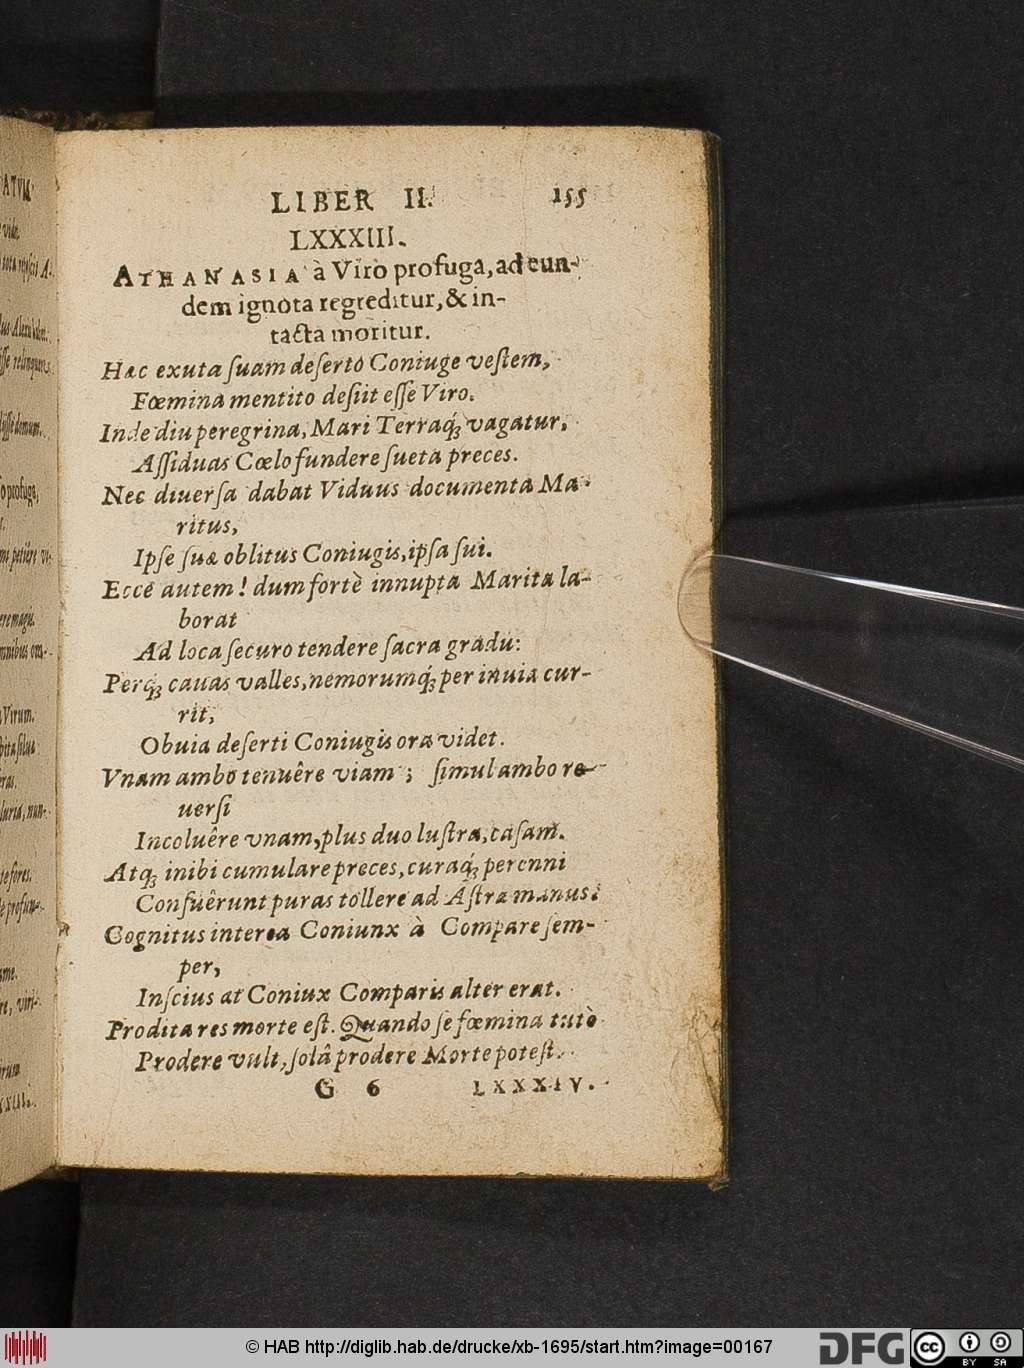 LIBER II. 155
LXXXIII.
ATHANASIA à Viro profuga, ad eun-
dem ignota regreditur, & in-
tacta moritur.
Hæc exuta ſuam deſerto Coniuge veſtem,
Fœmina mentito deſiit eſſe Viro.
Inde diu peregrina, Mari Terraq́ꝫ vagatur,
Aſſiduas Cœlo fundere ſueta preces.
Nec diuerſa dabat Viduus documenta Ma-
ritus,
Ipſe ſuæ oblitus Coniugis, ipſa ſui.
Ecce autem! dum fortè innupta Marita la-
borat
Ad loca ſecuro tendere ſacra gradu:
Perq́ꝫ cauas valles, nemorumq́ꝫ per inuia cur-
rit,
Obuia deſerti Coniugis ora videt.
Vnam ambo tenuêre viam; ſimul ambo re-
uerſi
Incoluêre vnam, plus duo luſtra, caſam.
Atqꝫ inibi cumulare preces, curaq́ꝫ perenni
Conſuêrunt puras tollere ad Aſtra manus.
Cognitus interea Coniunx à Compare ſem-
per,
Inſcius at Coniux Comparis alter erat.
Prodita res morte eſt. Quando ſe fœmina tutò
Prodere vult, ſolâ prodere Morte poteſt.
G 6 LXXXIV.
© HAB http://diglib.hab.de/drucke/xb-1695/start.htm?image=00167
DFG
cc
BY SA